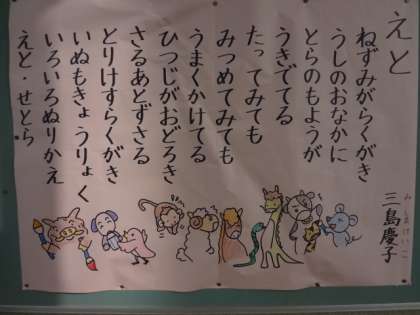 えと
三島慶子
み
けいこ
ねずみがらくがき
うしのおなかに
とらのもようが
うきでてる
たってみても
みつめてみても
うまくかけてる
ひつじがおどろき
さるあとずさる
とりけすらくがき
いぬもきょうりょく
いろいろぬりかえ
えと・せとら